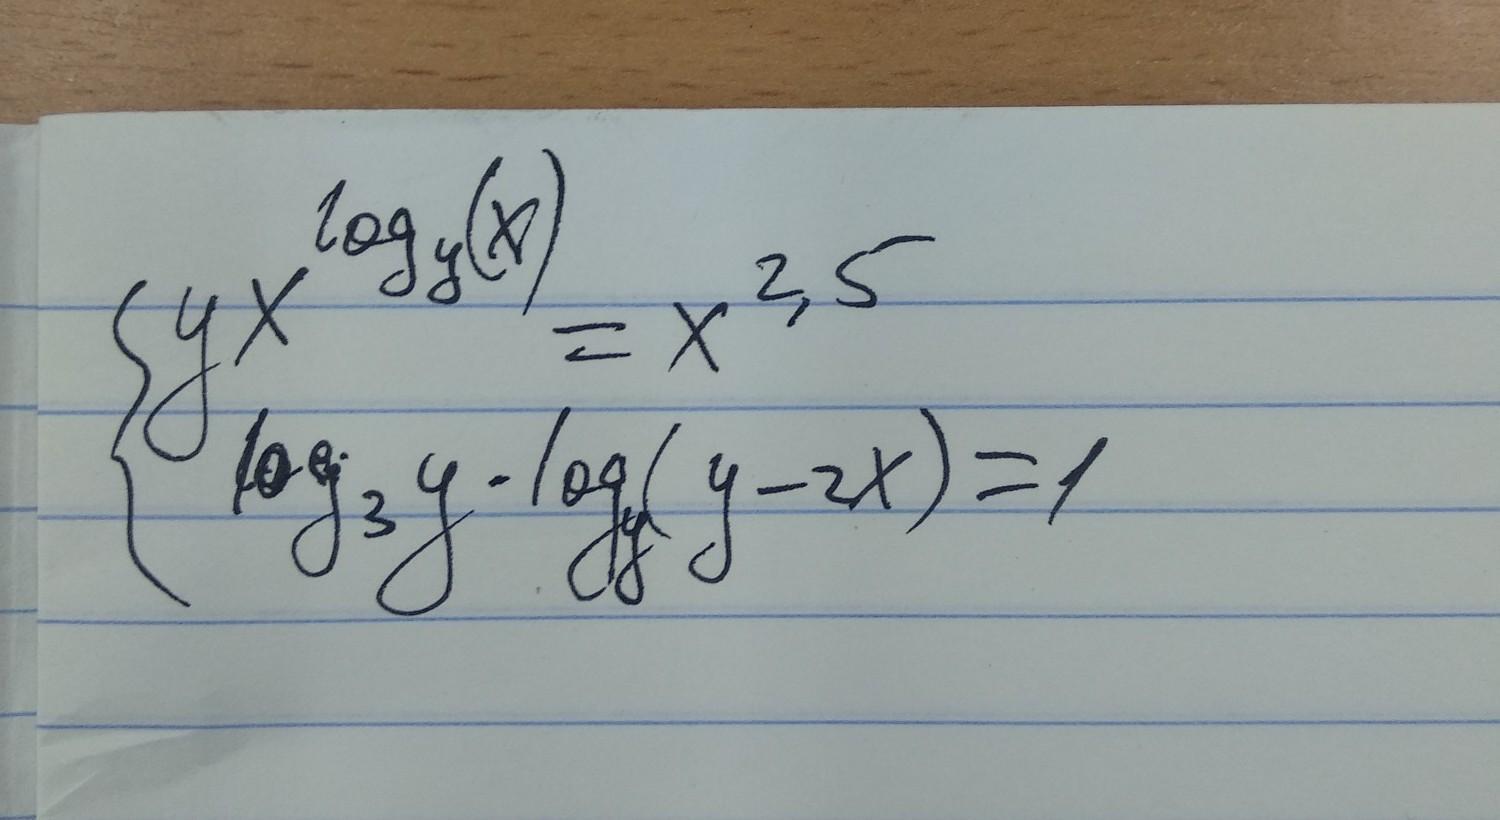 { y x^{log_y(x)} = x^{2,5}
log_3 y · log_y(y - 2x) = 1